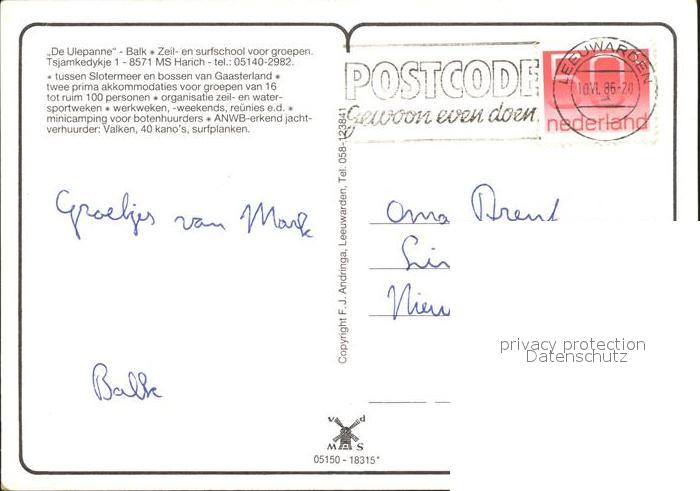 „De Ulepanne" - Balk ✶ Zeil- en surfschool voor groepen.
Tsjamkedykje 1 - 8571 MS Harich - tel.: 05140-2982.
✶ tussen Slotermeer en bossen van Gaasterland ✶
twee prima akkommodaties voor groepen van 16
tot ruim 100 personen ✶ organisatie zeil- en water-
sportweken ✶ werkweken, -weekends, reünies e.d. ✶
minicamping voor botenhuurders ✶ ANWB-erkend jacht-
verhuurder: Valken, 40 kano's, surfplanken.
POSTCODE
gewoon even doen
LEEUWARDEN
10.VI. 86-20
50
nederland
Groetjes van Mark
Balk
Copyright F. J. Andringa, Leeuwarden, Tel. 058-123841
Oma Brent
Sin
Nieu
privacy protection
Datenschutz
v d
M A S
05150 - 18315*